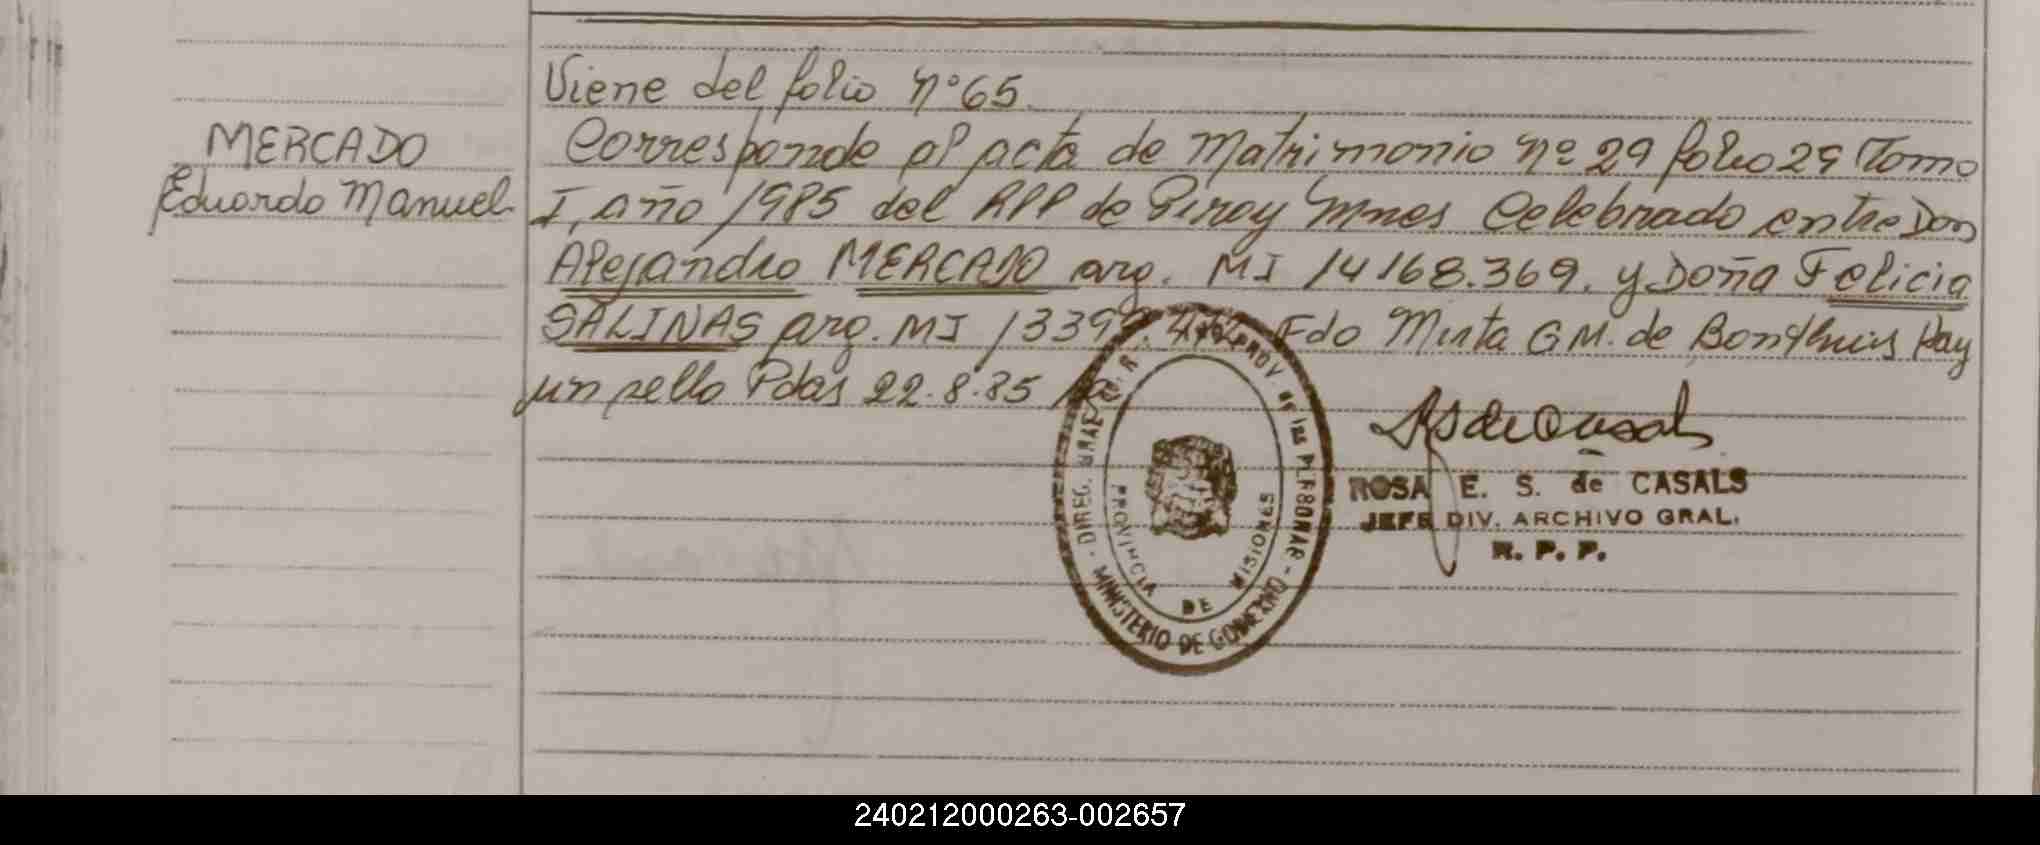 Viene del folio Nº 65.
MERCADO
Eduardo Manuel
Corresponde al acta de Matrimonio Nº 29 folio 29 Tomo
I, año 1985 del RPP de Piray Mnes Celebrado entre Don
Alejandro MERCADO arg. MI 14168.369. y Doña Felicia
SALINAS arg. MI Fdo Mirta G M. de Hay
un sello Pdas 22.8.85
DIREG. GRAL. PROV. DE las PERSONAS
PROVINCIA DE MISIONES
- MINISTERIO DE GOBIERNO -
ROSA E. S. de CASALS
JEFE DIV. ARCHIVO GRAL.
R. P. P.
240212000263-002657